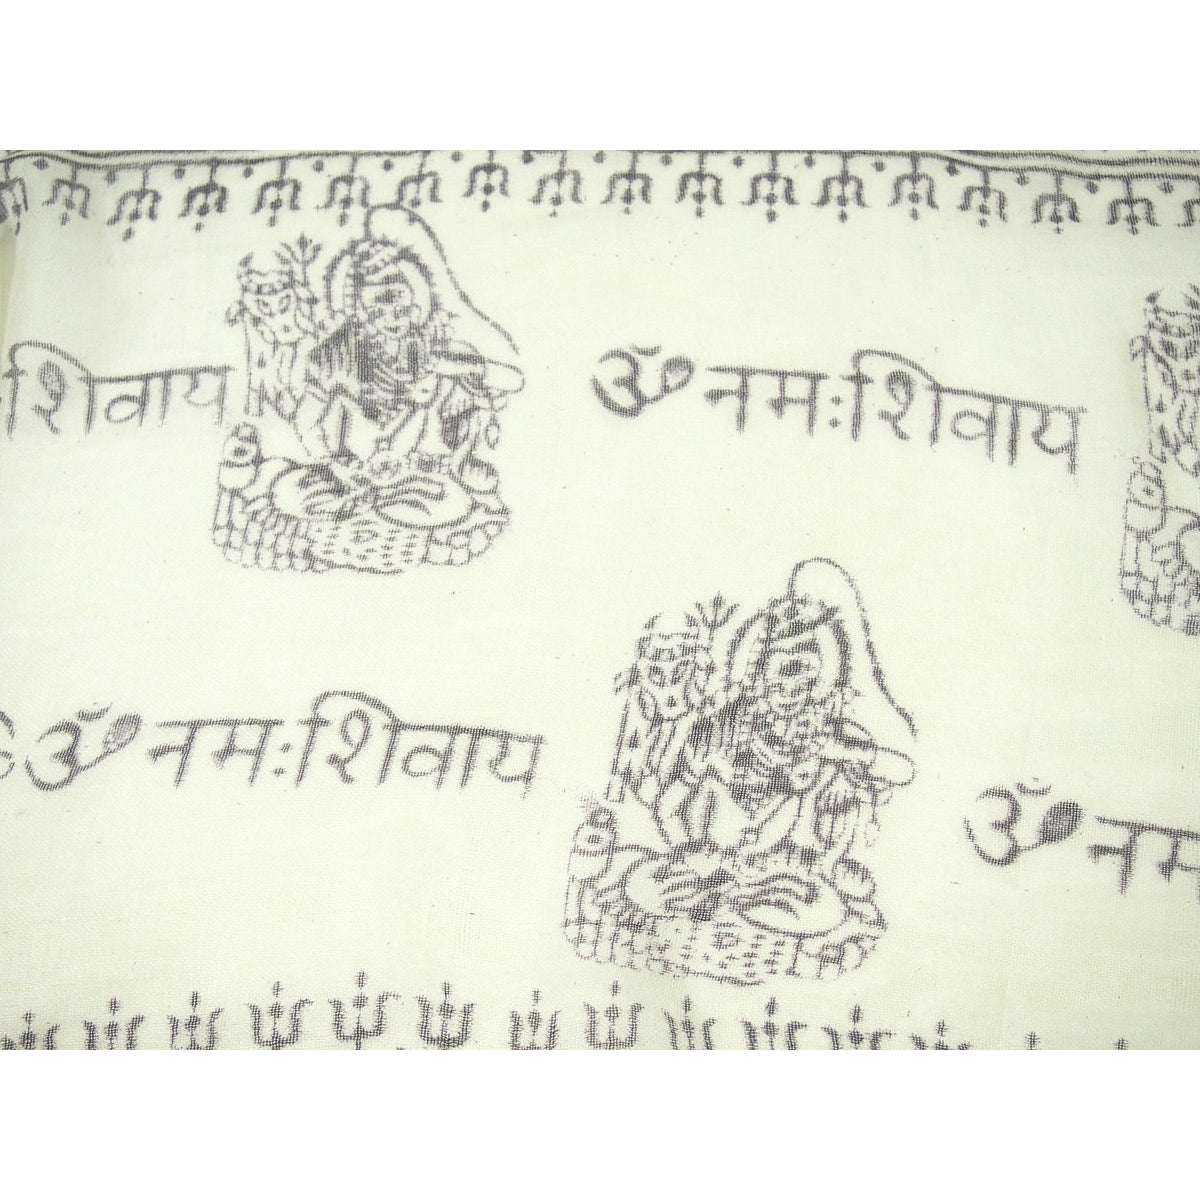 शिवाय
ॐ नमः शिवाय
ॐ नमः शिवाय
ॐ नम